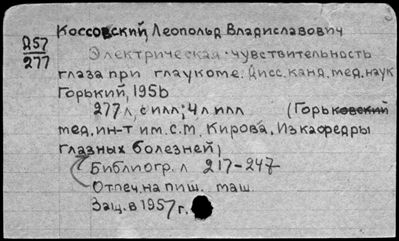 Коссовский, Леопольд Владиславович
Д57
277
Электрическая чувствительность
глаза при глаукоме. Дисс. канд. мед. наук
Горький, 1956
277 л, с илл; 4 л илл (Горьковский
мед. ин-т им. С.М. Кирова. Из кафедры
глазных болезней)
Библиогр. л 217-247
Отпеч. на пиш. маш.
Защ. в 1957 г.